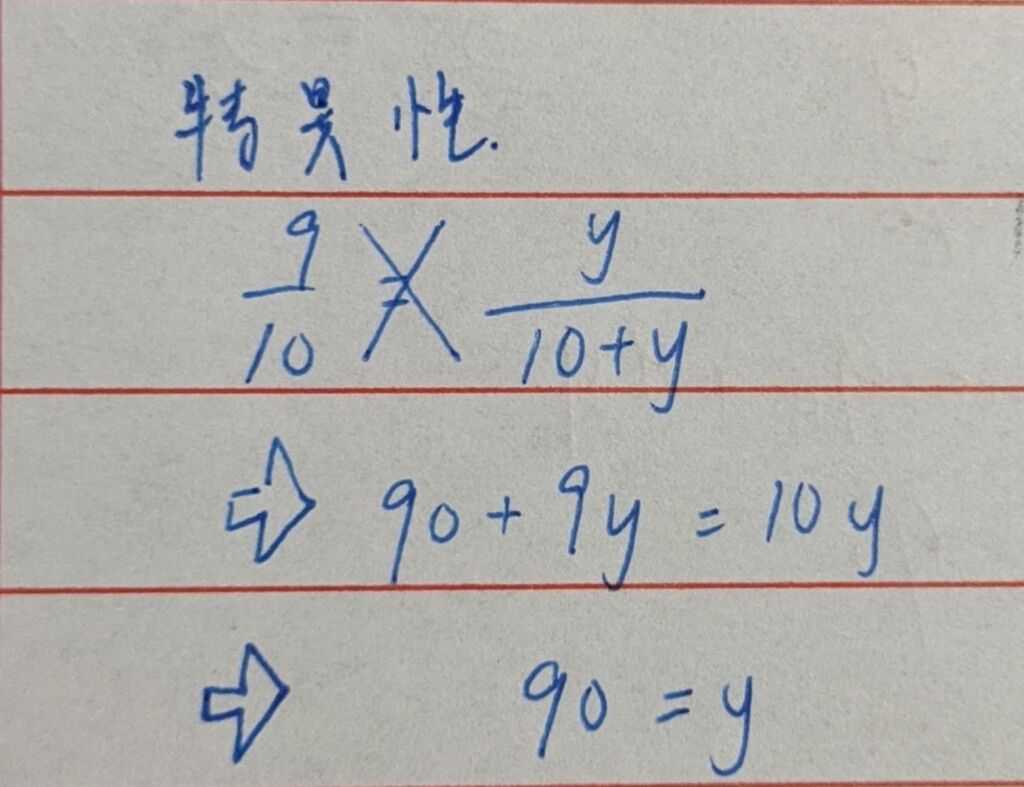 特异性.
9/10 = y/(10+y)
⇨ 90 + 9y = 10y
⇨ 90 = y